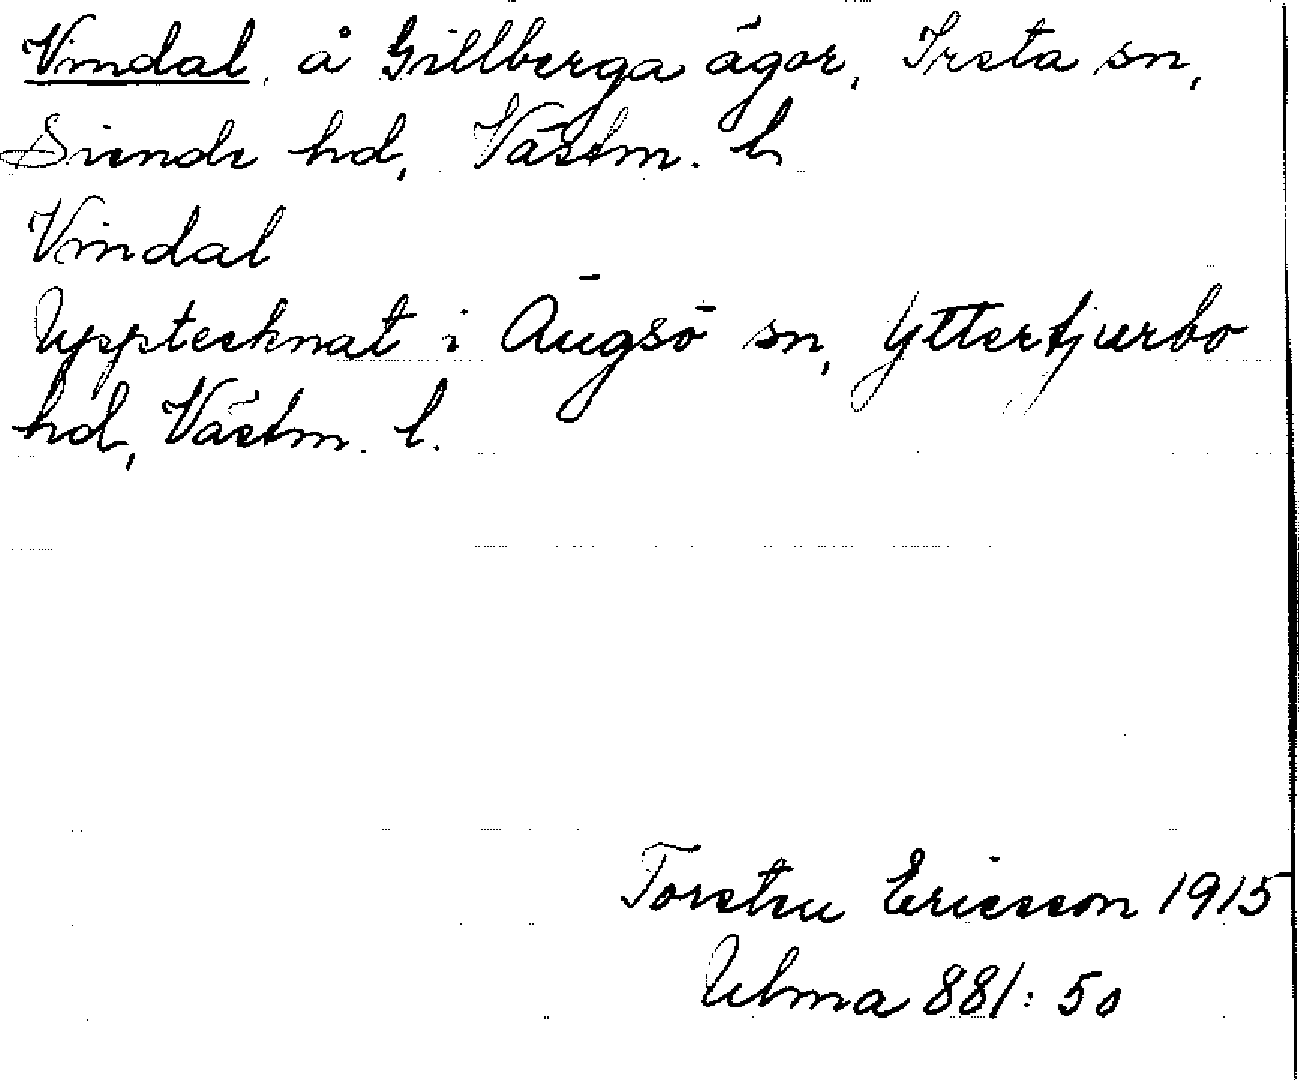 Vindal, å Gillberga ägor, Irsta sn,
Siende hd, Västm. l
Vindal
Upptecknat i Ängsö sn, Yttertjurbo
hd, Västm. l.
Torsten Ericsson 1915
Ulma 881:50